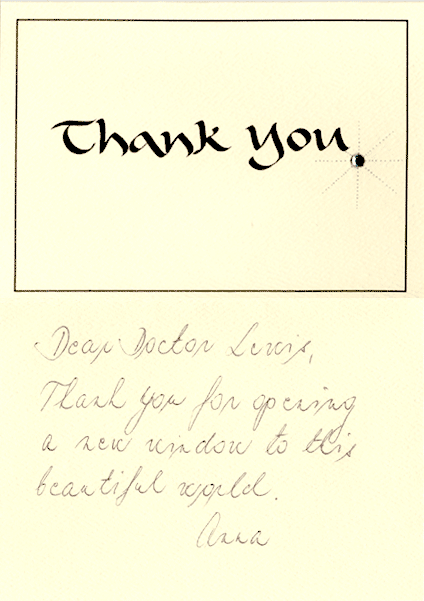 Thank You
Dear Doctor Lewis,
Thank you for opening
a new window to this
beautiful world.
Anna